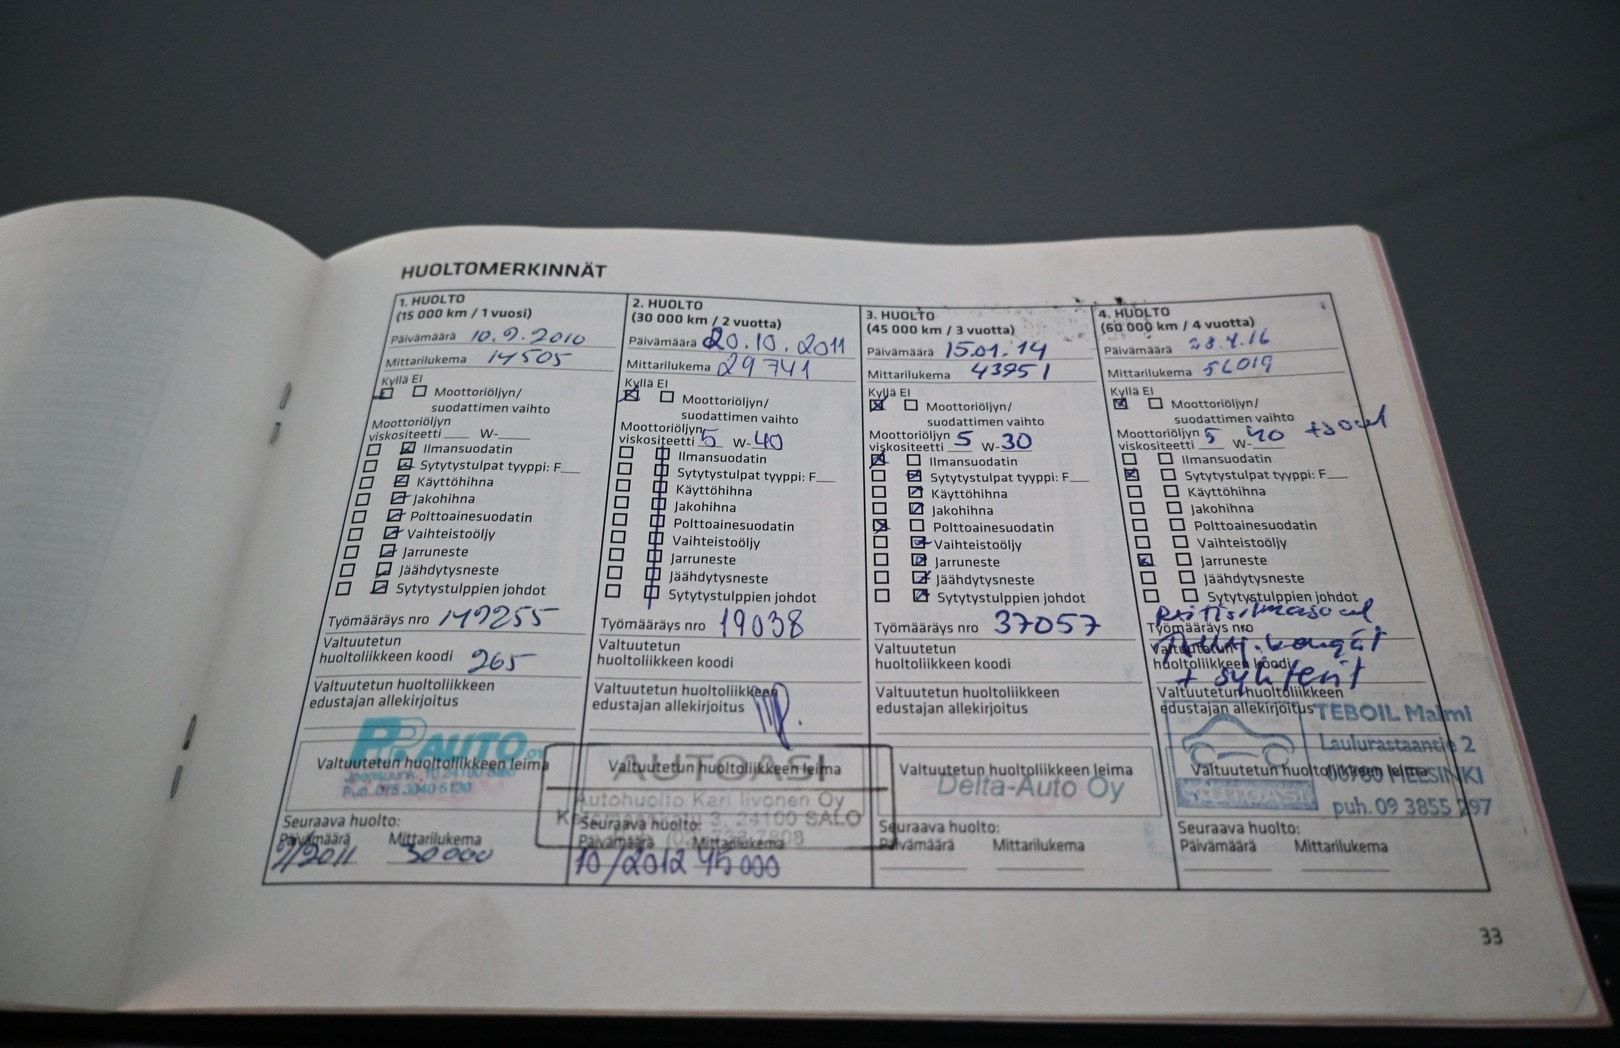 HUOLTOMERKINNÄT
1. HUOLTO
(15 000 km / 1 vuosi)
Päivämäärä 10.9.2010
Mittarilukema 14505
Kyllä Ei
Moottoriöljyn/
suodattimen vaihto
Moottoriöljyn
viskositeetti W-
Ilmansuodatin
Sytytystulpat tyyppi: F
Käyttöhihna
Jakohihna
Polttoainesuodatin
Vaihteistoöljy
Jarruneste
Jäähdytysneste
Sytytystulppien johdot
Työmääräys nro 149255
Valtuutetun
huoltoliikkeen koodi 265
Valtuutetun huoltoliikkeen
edustajan allekirjoitus
AUTO OY
Valtuutetun huoltoliikkeen leima
Seuraava huolto:
Päivämäärä Mittarilukema
9/2011 30000
2. HUOLTO
(30 000 km / 2 vuotta)
Päivämäärä 20.10.2011
Mittarilukema 29741
Kyllä Ei
Moottoriöljyn/
suodattimen vaihto
Moottoriöljyn
viskositeetti 5 W-40
Ilmansuodatin
Sytytystulpat tyyppi: F
Käyttöhihna
Jakohihna
Polttoainesuodatin
Vaihteistoöljy
Jarruneste
Jäähdytysneste
Sytytystulppien johdot
Työmääräys nro 19038
Valtuutetun
huoltoliikkeen koodi
Valtuutetun huoltoliikkeen
edustajan allekirjoitus
AUTOASI
Valtuutetun huoltoliikkeen leima
Autohuolto Kari Iivonen Oy
3, 24100 SALO
Seuraava huolto:
Päivämäärä Mittarilukema
10/2012 45000
3. HUOLTO
(45 000 km / 3 vuotta)
Päivämäärä 15.01.14
Mittarilukema 43951
Kyllä Ei
Moottoriöljyn/
suodattimen vaihto
Moottoriöljyn
viskositeetti 5 W-30
Ilmansuodatin
Sytytystulpat tyyppi: F
Käyttöhihna
Jakohihna
Polttoainesuodatin
Vaihteistoöljy
Jarruneste
Jäähdytysneste
Sytytystulppien johdot
Työmääräys nro 37057
Valtuutetun
huoltoliikkeen koodi
Valtuutetun huoltoliikkeen
edustajan allekirjoitus
Valtuutetun huoltoliikkeen leima
Delta-Auto Oy
Seuraava huolto:
Päivämäärä Mittarilukema
4. HUOLTO
(60 000 km / 4 vuotta)
Päivämäärä 28.4.16
Mittarilukema 56019
Kyllä Ei
Moottoriöljyn/
suodattimen vaihto
Moottoriöljyn
viskositeetti 5 W-40
Ilmansuodatin
Sytytystulpat tyyppi: F
Käyttöhihna
Jakohihna
Polttoainesuodatin
Vaihteistoöljy
Jarruneste
Jäähdytysneste
Sytytystulppien johdot
Työmääräys nro
Valtuutetun
huoltoliikkeen koodi
Valtuutetun huoltoliikkeen
edustajan allekirjoitus
TEBOIL Malmi
Laulurastaantie 2
Valtuutetun huoltoliikkeen leima
00780 HELSINKI
AUTOASI
puh. 09 3855 297
Seuraava huolto:
Päivämäärä Mittarilukema
33